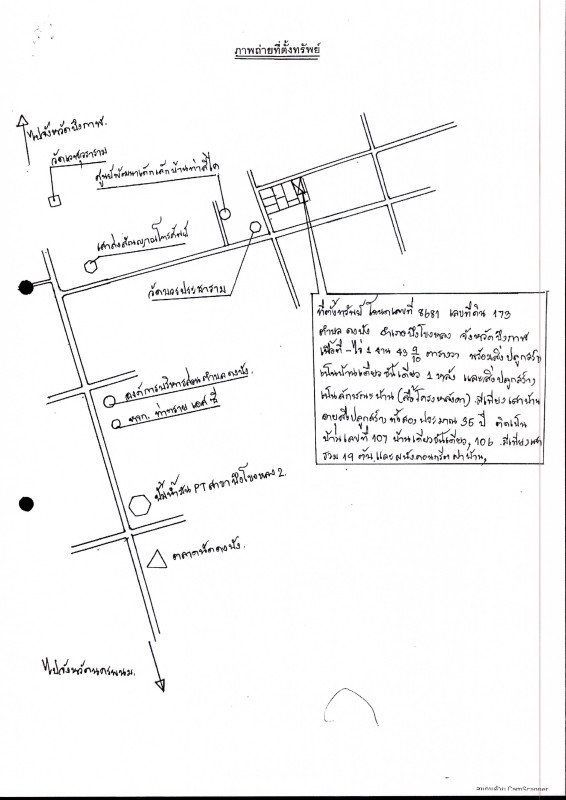 ภาพถ่ายที่ตั้งทรัพย์
ไปจังหวัดบึงกาฬ.
วัดเวฬุวราราม
ศูนย์พัฒนาเด็กเล็กบ้านท่าสีไค
เสาส่งสัญญาณโทรศัพท์
วัดบวรประชาราม
ที่ตั้งทรัพย์ โฉนดเลขที่ 8681 เลขที่ดิน 173
ตำบล ดงบัง อำเภอบึงโขงหลง จังหวัดบึงกาฬ
เนื้อที่ - ไร่ 1 งาน 43 9/10 ตารางวา พร้อมสิ่งปลูกสร้าง
เป็นบ้านเดี่ยวชั้นเดียว 1 หลัง และสิ่งปลูกสร้าง
เป็นลักษณะบ้าน (สื่อโครงหลังคา) มีเพียงเสาบ้าน
อายุสิ่งปลูกสร้าง ทั้งสอง ประมาณ 35 ปี ติดเป็น
บ้านเลขที่ 107 บ้านเดี่ยวชั้นเดียว, 106 มีเพียงเสา
รวม 19 ต้น และ ผนังคอนกรีต ฝาบ้าน,
องค์การบริหารส่วนตำบลดงบัง.
หจก. ท่าทราย เอส ซี
ปั้มน้ำมัน PT สาขา บึงโขงหลง 2.
ตลาดนัดดงบัง.
ไปจังหวัดนครพนม.
สแกนด้วย CamScanner